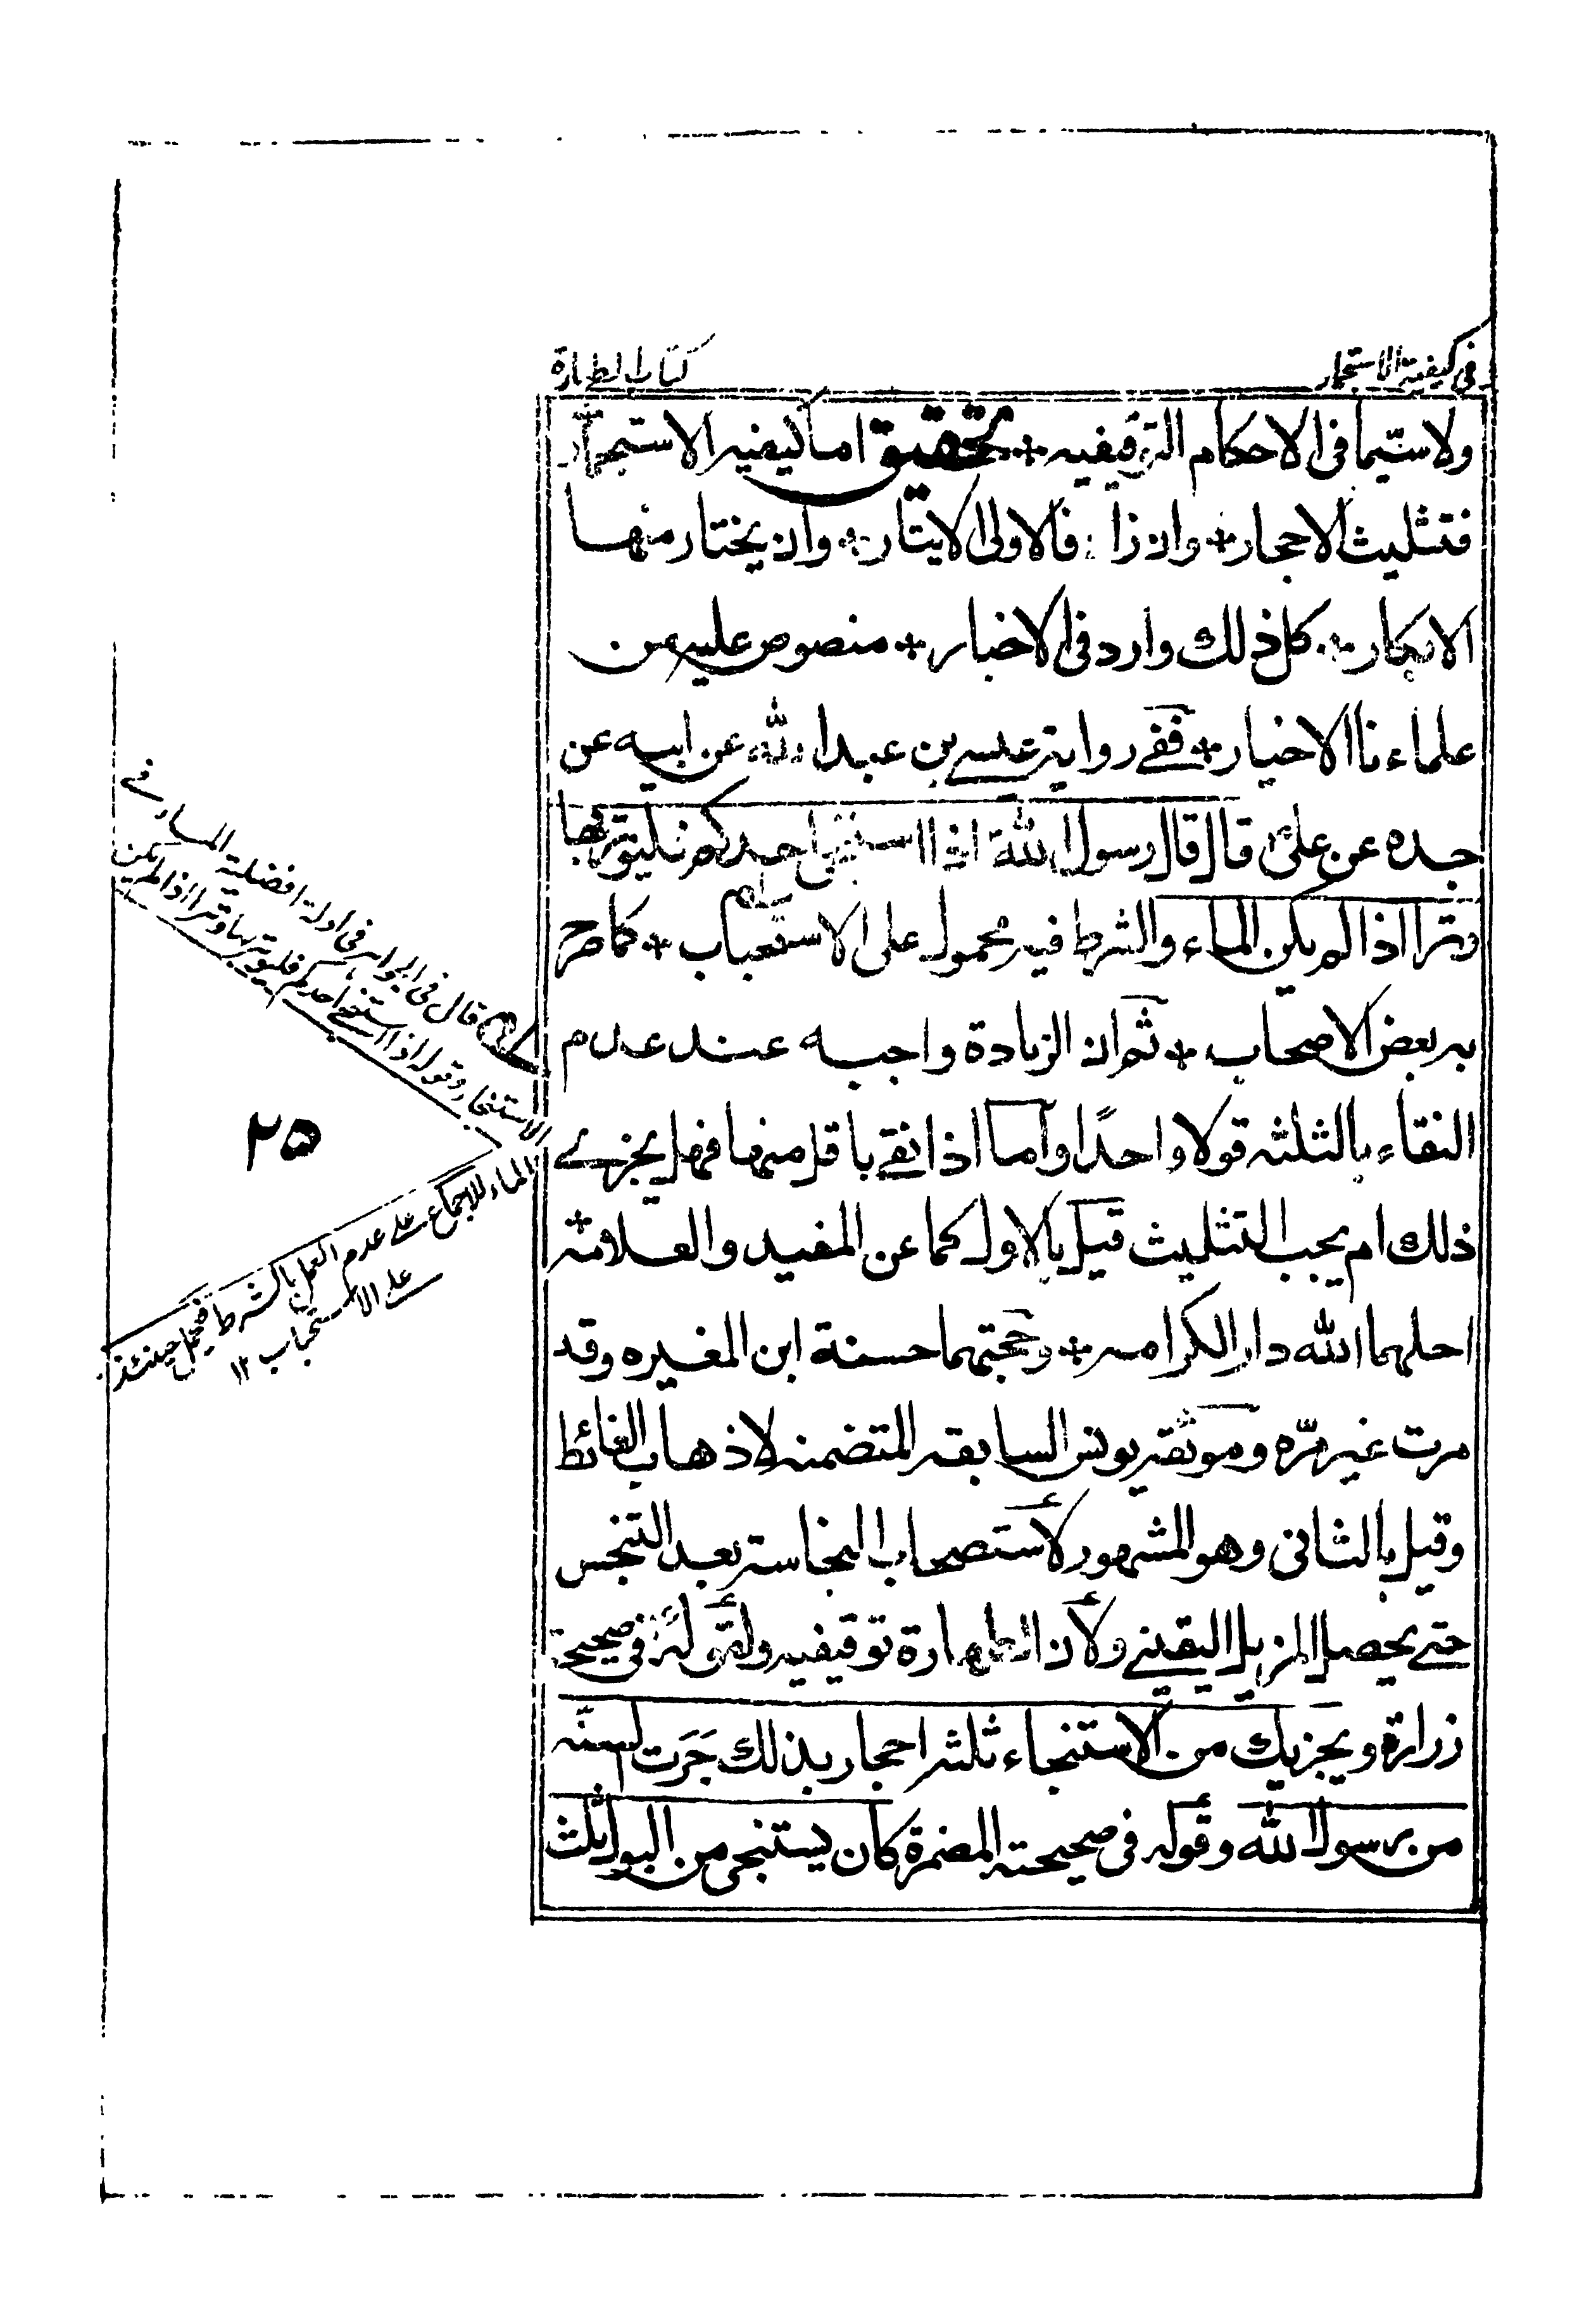 في كيفية الاستجمار
كتاب الطهارة
ولا سيّما فى الاحكام التوقيفيه * تحقيق اما كيفيه الاستجمار
فتثليث الاحجار * وان زاد فالاولى الايتار * وان يختار منها
الابكار * كل ذلك وارد فى الاخبار * منصوص عليه عن
علماءنا الاخيار * ففے رواية عيسے بن عبد الله عن ابيه عن
جده عن علىؑ قال قال رسول اللهؐ اذا استنجى احدكم فليوتر بها
وترا اذا لم يكن الماء والشرط فيه محمول على الاستحباب * كما صرح
به بعض الاصحاب * ثم ان الزيادة واجبه عند عدم
النقاء بالثلثه قولا واحدًا واما اذا نقے باقل منها فهل يجزے
ذلك ام يجب التثليث قيل بالاول كما عن المفيد والعلامة
احلهما الله دار الكرامه * وحجتهما حسنة ابن المغيره وقد
مرت غير مرّه وموثقه يونس السابقه المتضمنه لاذهاب الغائط
وقيل بالثانى وهو المشهور لأستصحاب النجاسة بعد التنجس
حتے يحصل المزيل اليقينے ولأن الطهارة توقيفيه ولقولهؑ فى صحيحة
زرارة ويجزيك من الاستنجاء ثلثه احجار بذلك جَرَت السنّه
من رسول الله وقوله فى صحيحته المضمرة كان يستنجى من البول ثلث
قال فى الجواهر فى ادلة افضلية الماء فے
الاستنجاء وقوله اذا استنجے احدكم فليوتر بها وترا اذا لم يكن
الماء للاجماع علے عدم العمل بالشرط فيحمل حينئذ
علے الاستحباب ١٢
٢٥